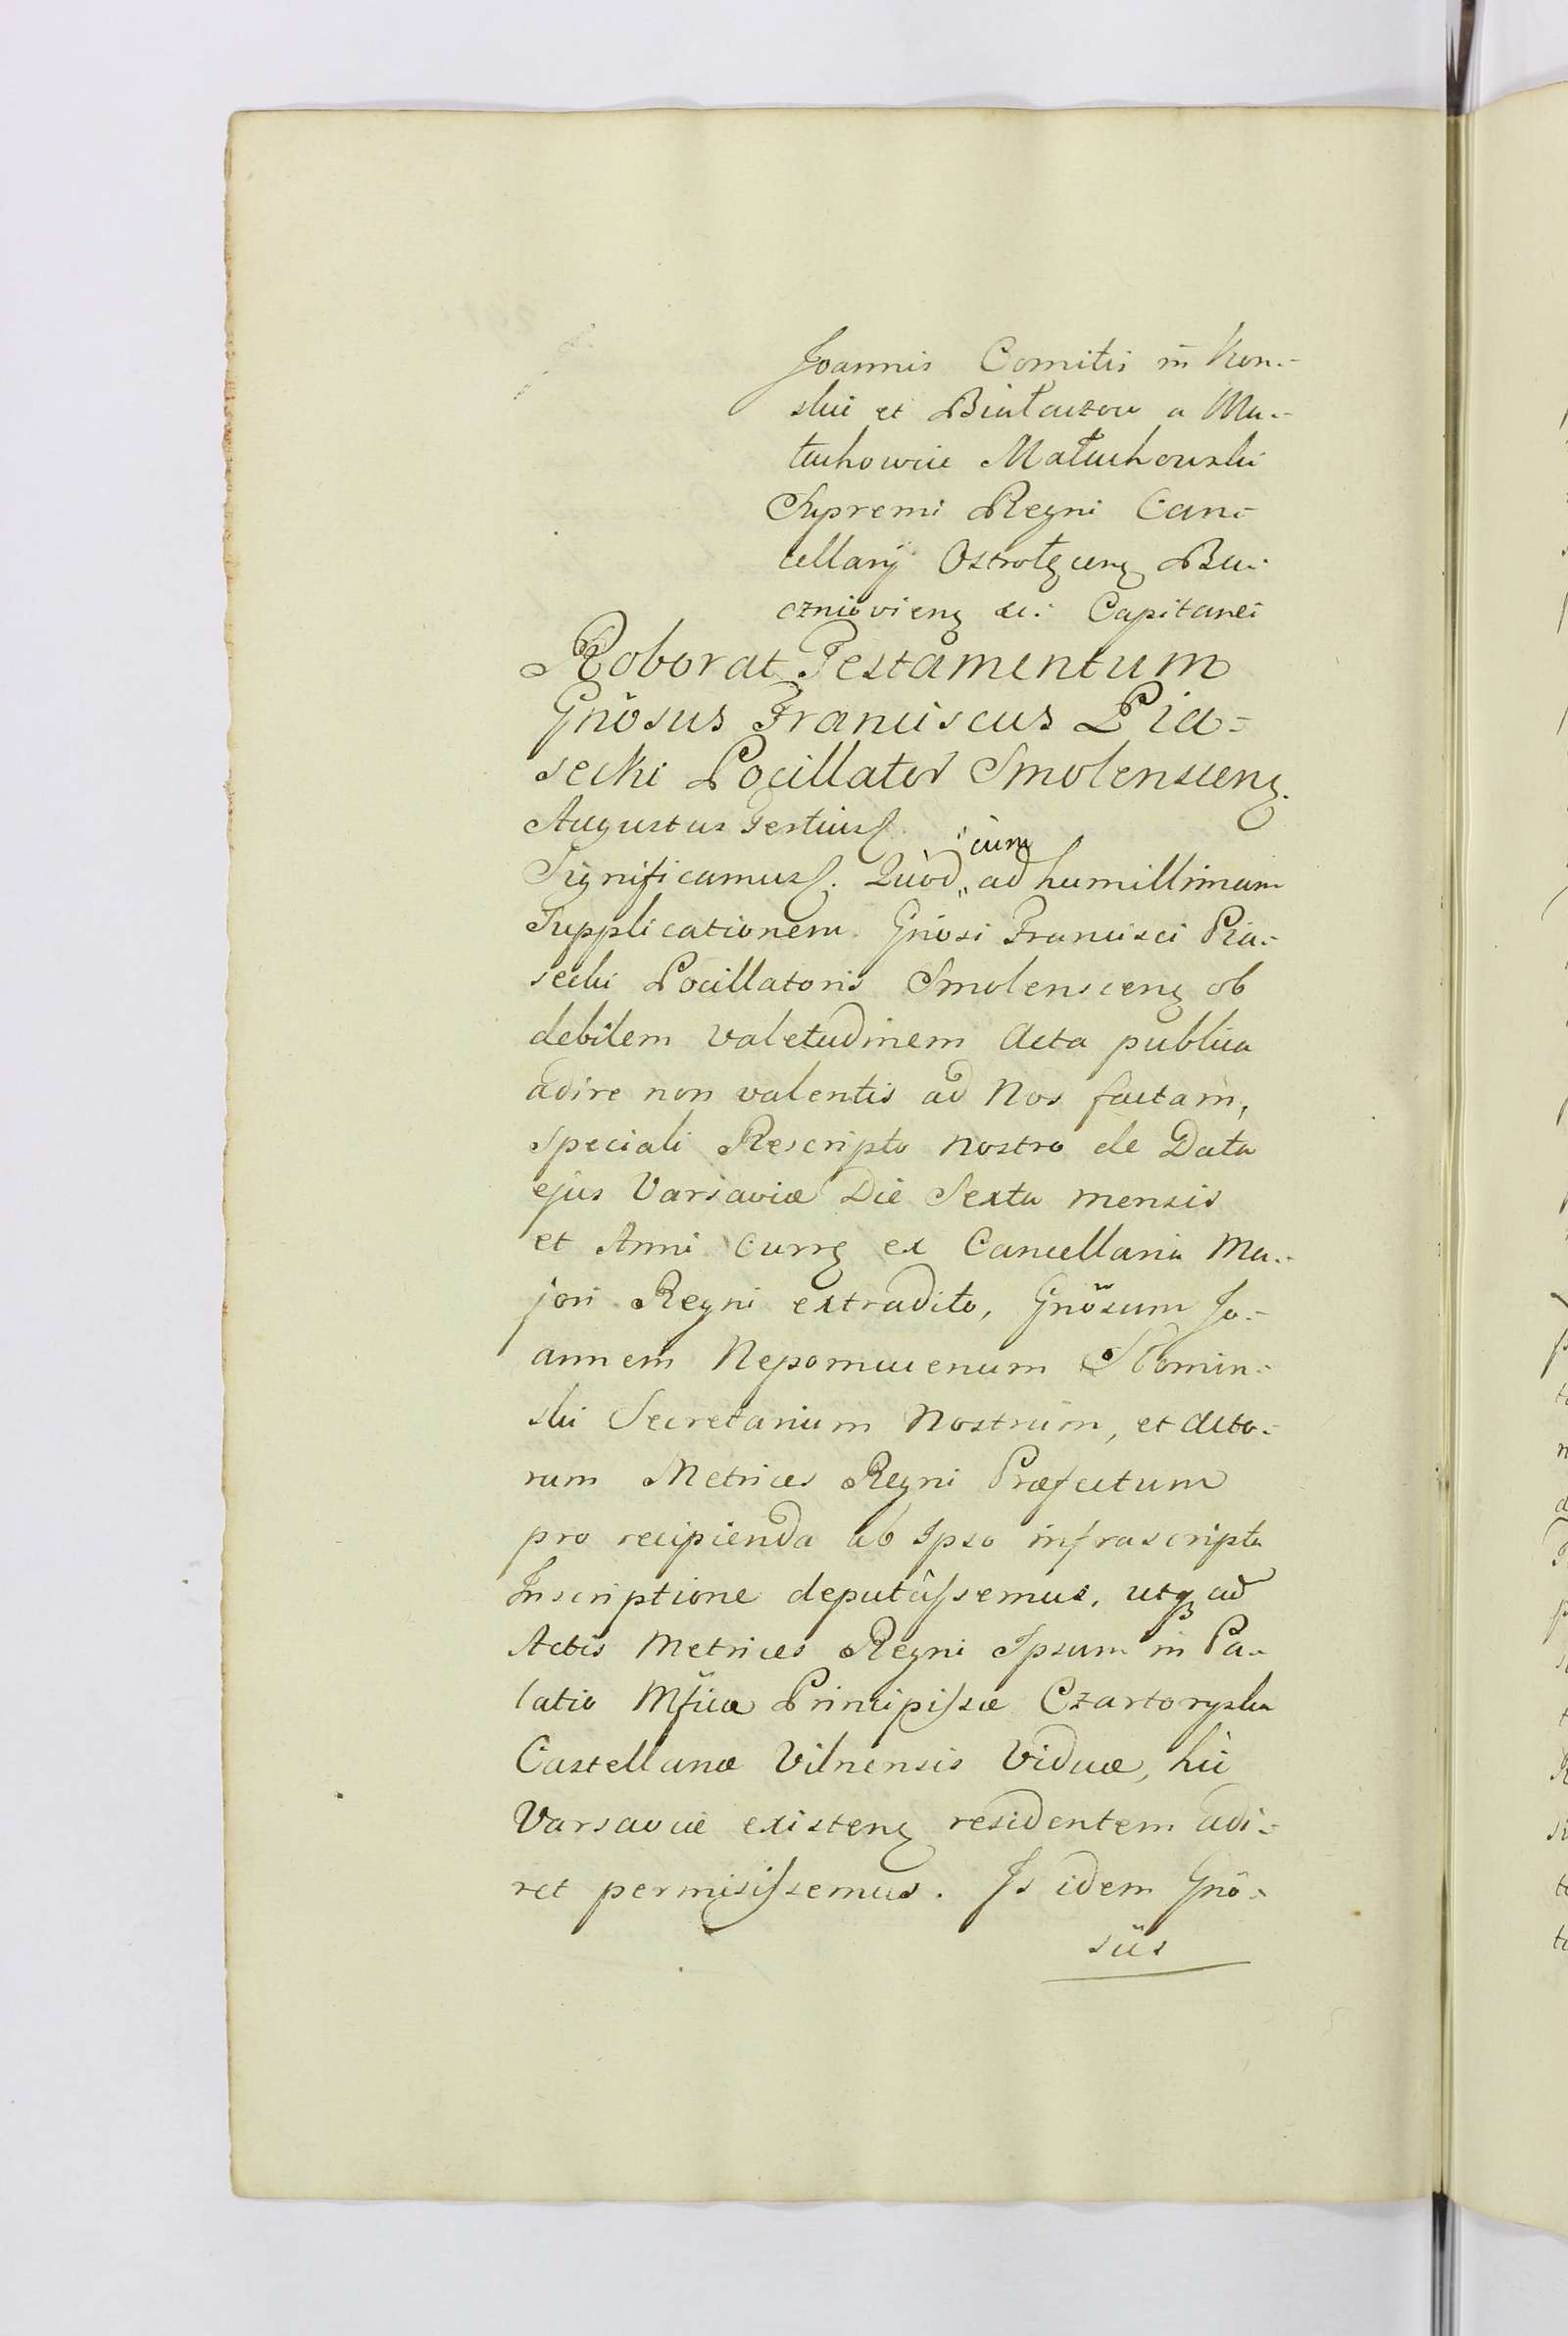 Joannis Comitis in Kon-
skie et Białaczow a Ma-
łachowice Małachowski
Supremi Regni Can-
cellarij Ostrołęcenȝ Bu-
czniovienȝ &c: Capitanei
Roborat Testamentum
Gnosus Franciscus Pia-
secki Pocillator Smolenscenȝ.
Augustus Tertius
Significamus. Quod cum ad humillimam
Supplicationem Gnosi Francisci Pia-
secki Pocillatoris Smolenscenȝ ob
debilem valetudinem Acta publica
adire non valentis ad Nos factam,
speciali Rescripto nostro de Data
ejus Varsaviæ Die Sexta mensis
et Anni Currȝ ex Cancellaria Ma-
jori Regni extradito, Gnosum Jo-
annem Nepomucenum Słomin-
ski Secretarium Nostrum, et Acto-
rum Metrices Regni Præfectum
pro recipienda ab Ipso infrascripta
Inscriptione deputâssemus, utqȝ ad
Actis Metrices Regni Ipsum in Pa-
latio Mficæ Principissæ Czartoryska
Castellanæ Vilnensis Viduæ, hic
Varsaviæ existenȝ residentem adi-
ret permisissemus. Is idem Gno-
sus